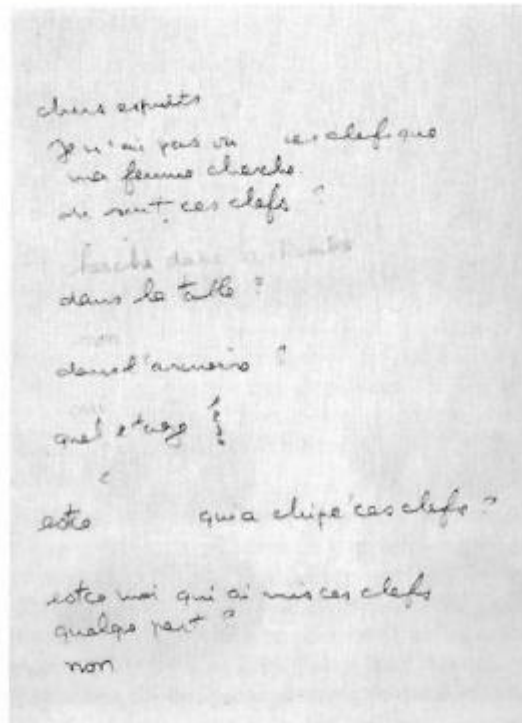 chers esprits
Je n'ai pas vu ces clefs que
ma femme cherche.
où sont ces clefs ?
cherche dans
dans la table ?
non
dans l'armoire ?
oui
quel etage ?
este qui a chipé ces clefs ?
estce moi qui ai mis ces clefs
quelqe part ?
non